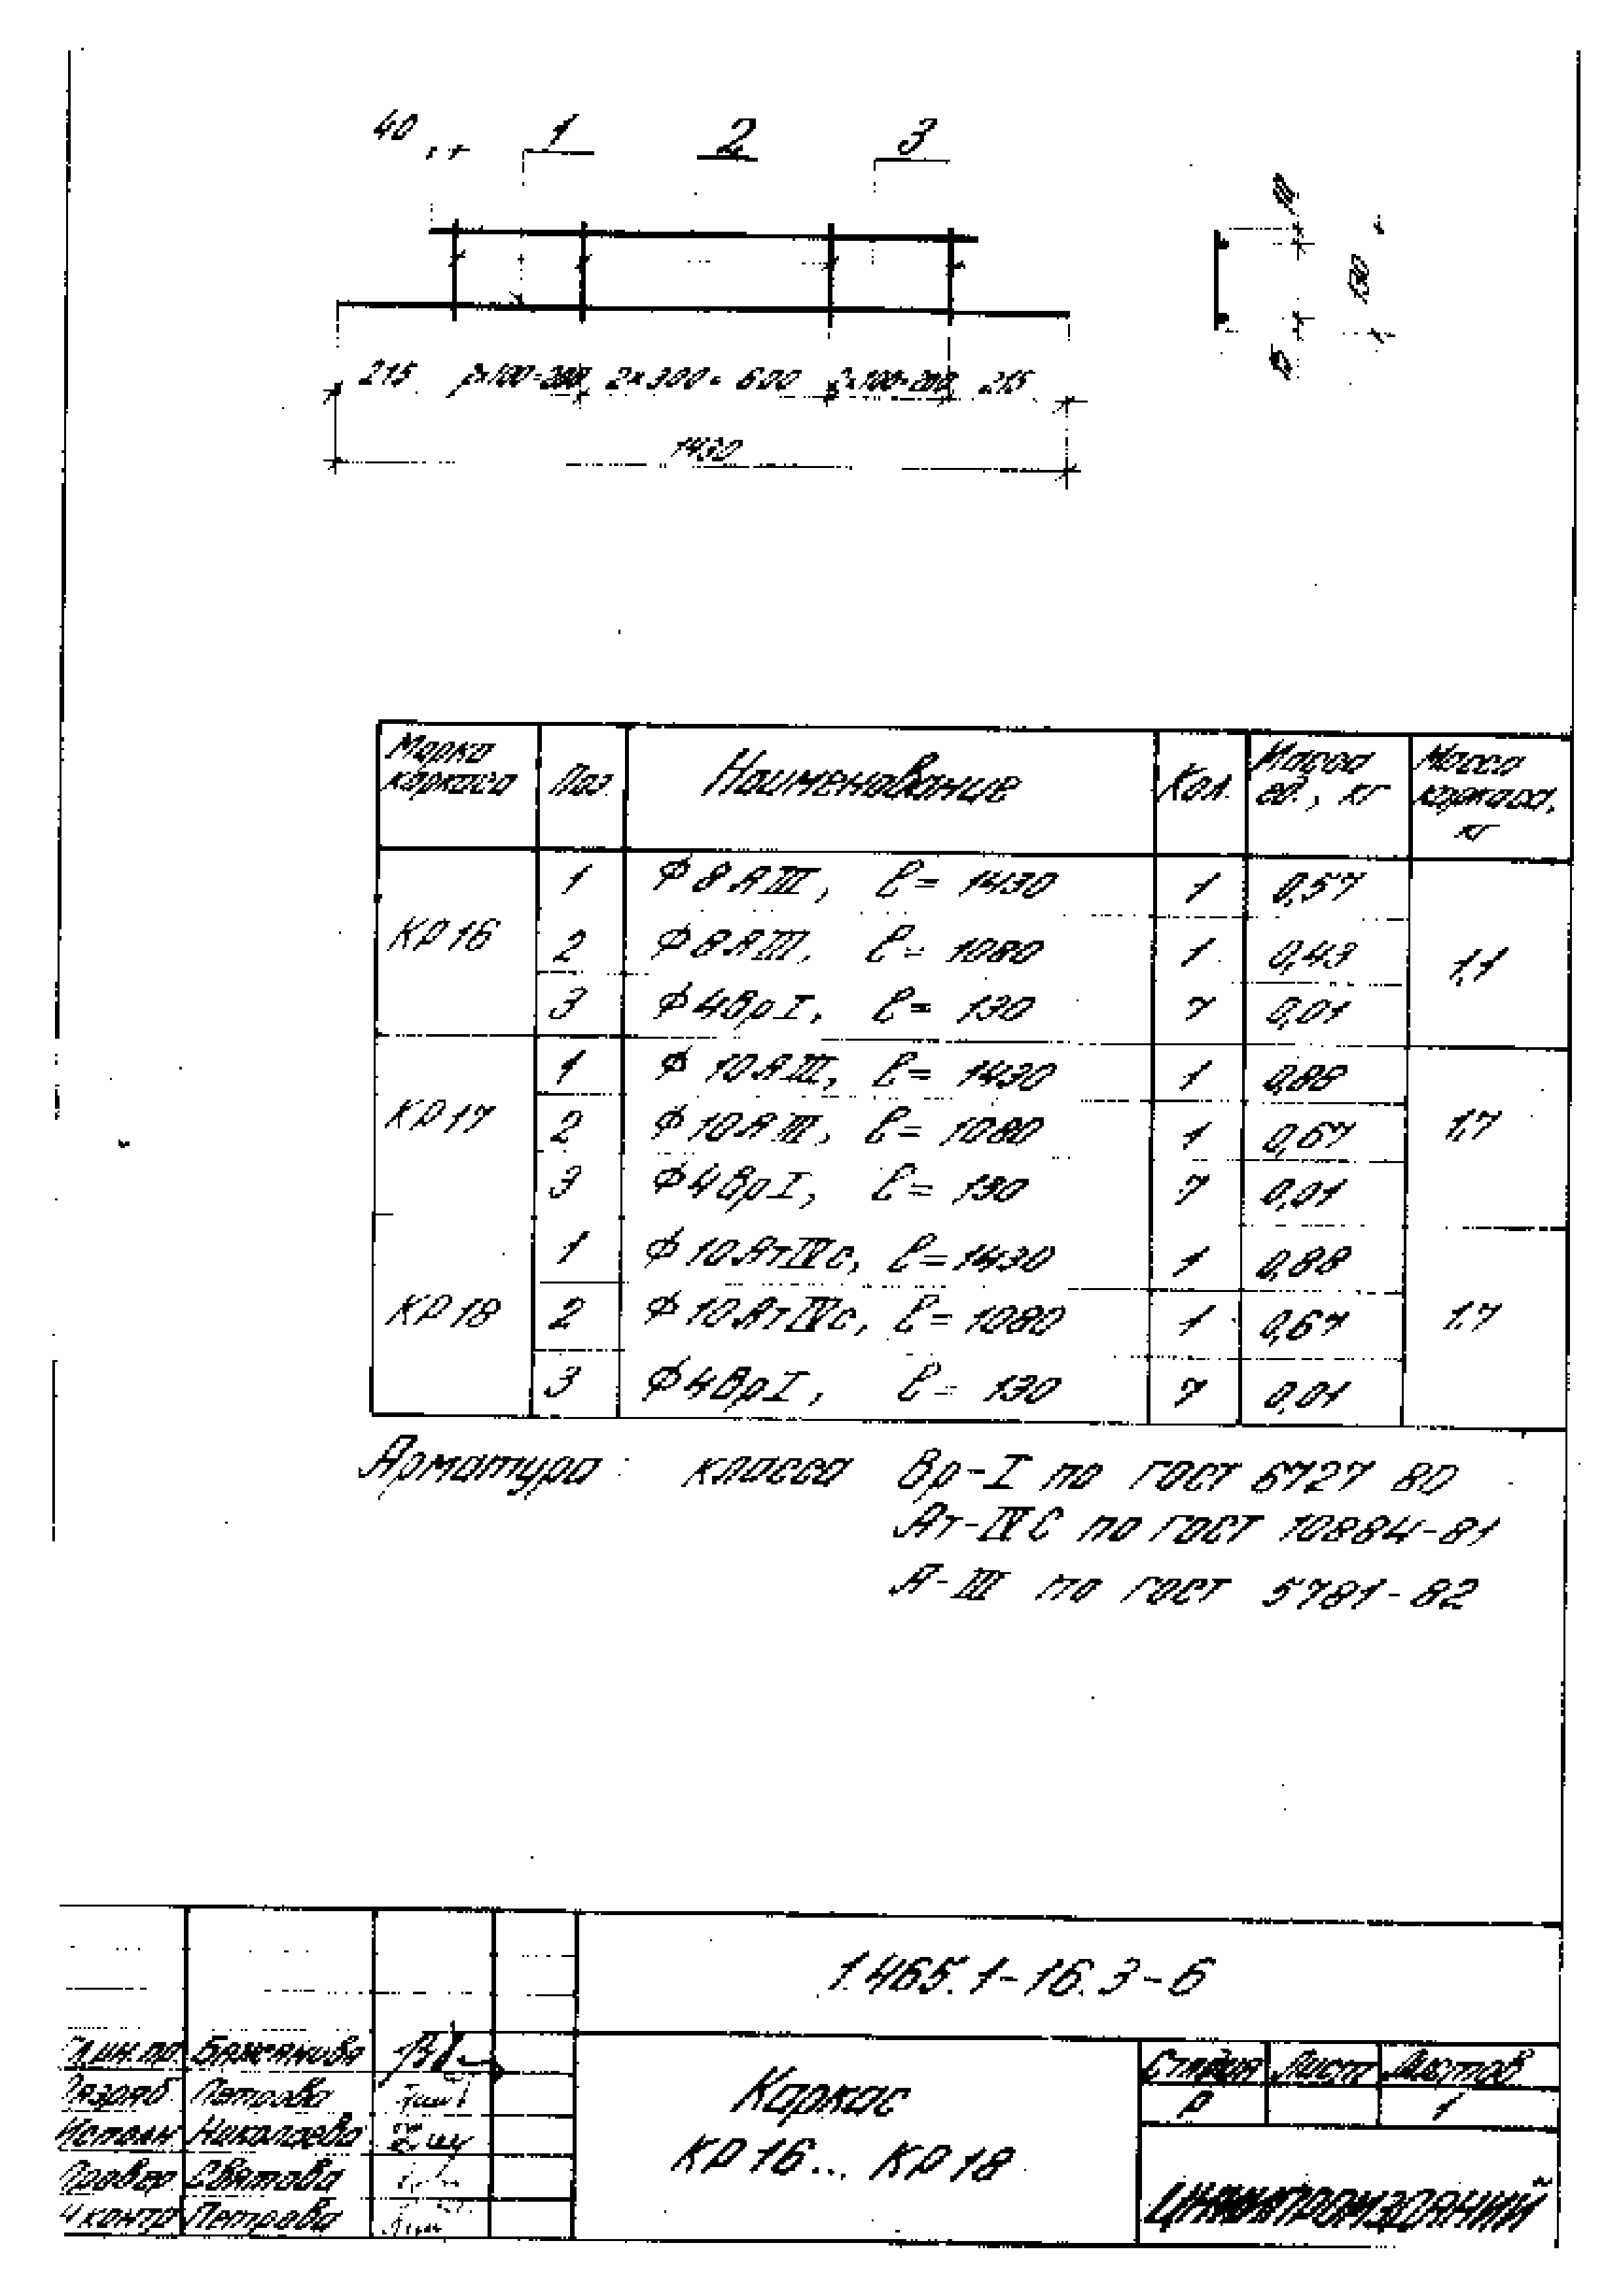 40 1 2 3
10
130
10
215 2×100=200 2×300=600 2×100=200 215
1430
Марка каркаса Поз. Наименование Кол. Масса ед., кг Масса каркаса, кг
КР16
1 ⌀8АIII, ℓ=1430 1 0,57
2 ⌀8АIII, ℓ=1080 1 0,43 1,1
3 ⌀4ВрI, ℓ=130 7 0,01
КР17
1 ⌀10АIII, ℓ=1430 1 0,88
2 ⌀10АIII, ℓ=1080 1 0,67 1,7
3 ⌀4ВрI, ℓ=130 7 0,01
КР18
1 ⌀10АтIVС, ℓ=1430 1 0,88
2 ⌀10АтIVС, ℓ=1080 1 0,67 1,7
3 ⌀4ВрI, ℓ=130 7 0,01
Арматура класса Вр-I по ГОСТ 6727 80
Ат-IVС по ГОСТ 10884-81
А-III по ГОСТ 5781-82
1.465.1-16.3-6
Гл.инж.пр Бажанова
Разраб Петрова
Исполн Николаева
Провер Святова
Н контр Петрова
Каркас
КР16... КР18
Стадия Лист Листов
Р 1
ЦНИИПРОМЗДАНИЙ